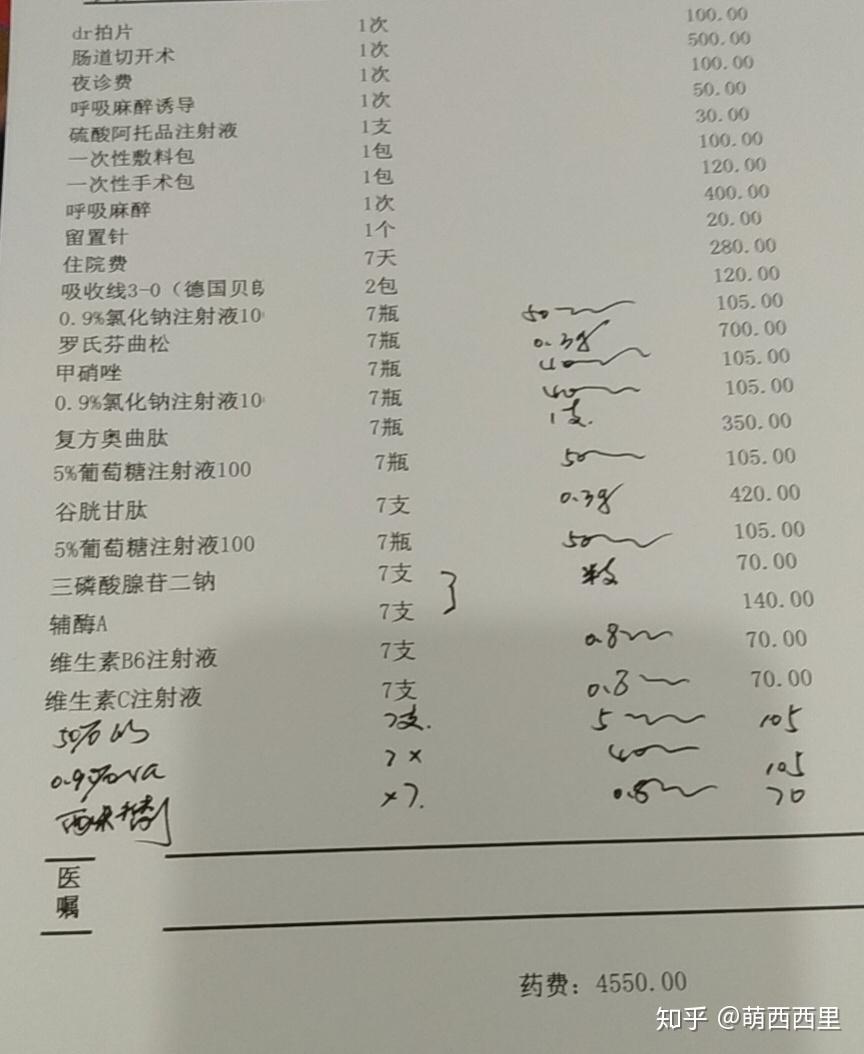 dr拍片 1次 100.00
肠道切开术 1次 500.00
夜诊费 1次 100.00
呼吸麻醉诱导 1次 50.00
硫酸阿托品注射液 1支 30.00
一次性敷料包 1包 100.00
一次性手术包 1包 120.00
呼吸麻醉 1次 400.00
留置针 1个 20.00
住院费 7天 280.00
吸收线3-0（德国贝朗 2包 120.00
0.9%氯化钠注射液10 7瓶 50 105.00
罗氏芬曲松 7瓶 0.3g 700.00
甲硝唑 7瓶 40 105.00
0.9%氯化钠注射液10 7瓶 40 105.00
复方奥曲肽 7瓶 1支. 350.00
5%葡萄糖注射液100 7瓶 50 105.00
谷胱甘肽 7支 0.3g 420.00
5%葡萄糖注射液100 7瓶 50 105.00
三磷酸腺苷二钠 7支 70.00
辅酶A 7支 140.00
维生素B6注射液 7支 0.8 70.00
维生素C注射液 7支 0.8 70.00
50% 7支. 5 105
0.9% 7× 40 105
西米替 ×7. 0.8 70
医嘱
药费：4550.00
知乎 @萌西西里